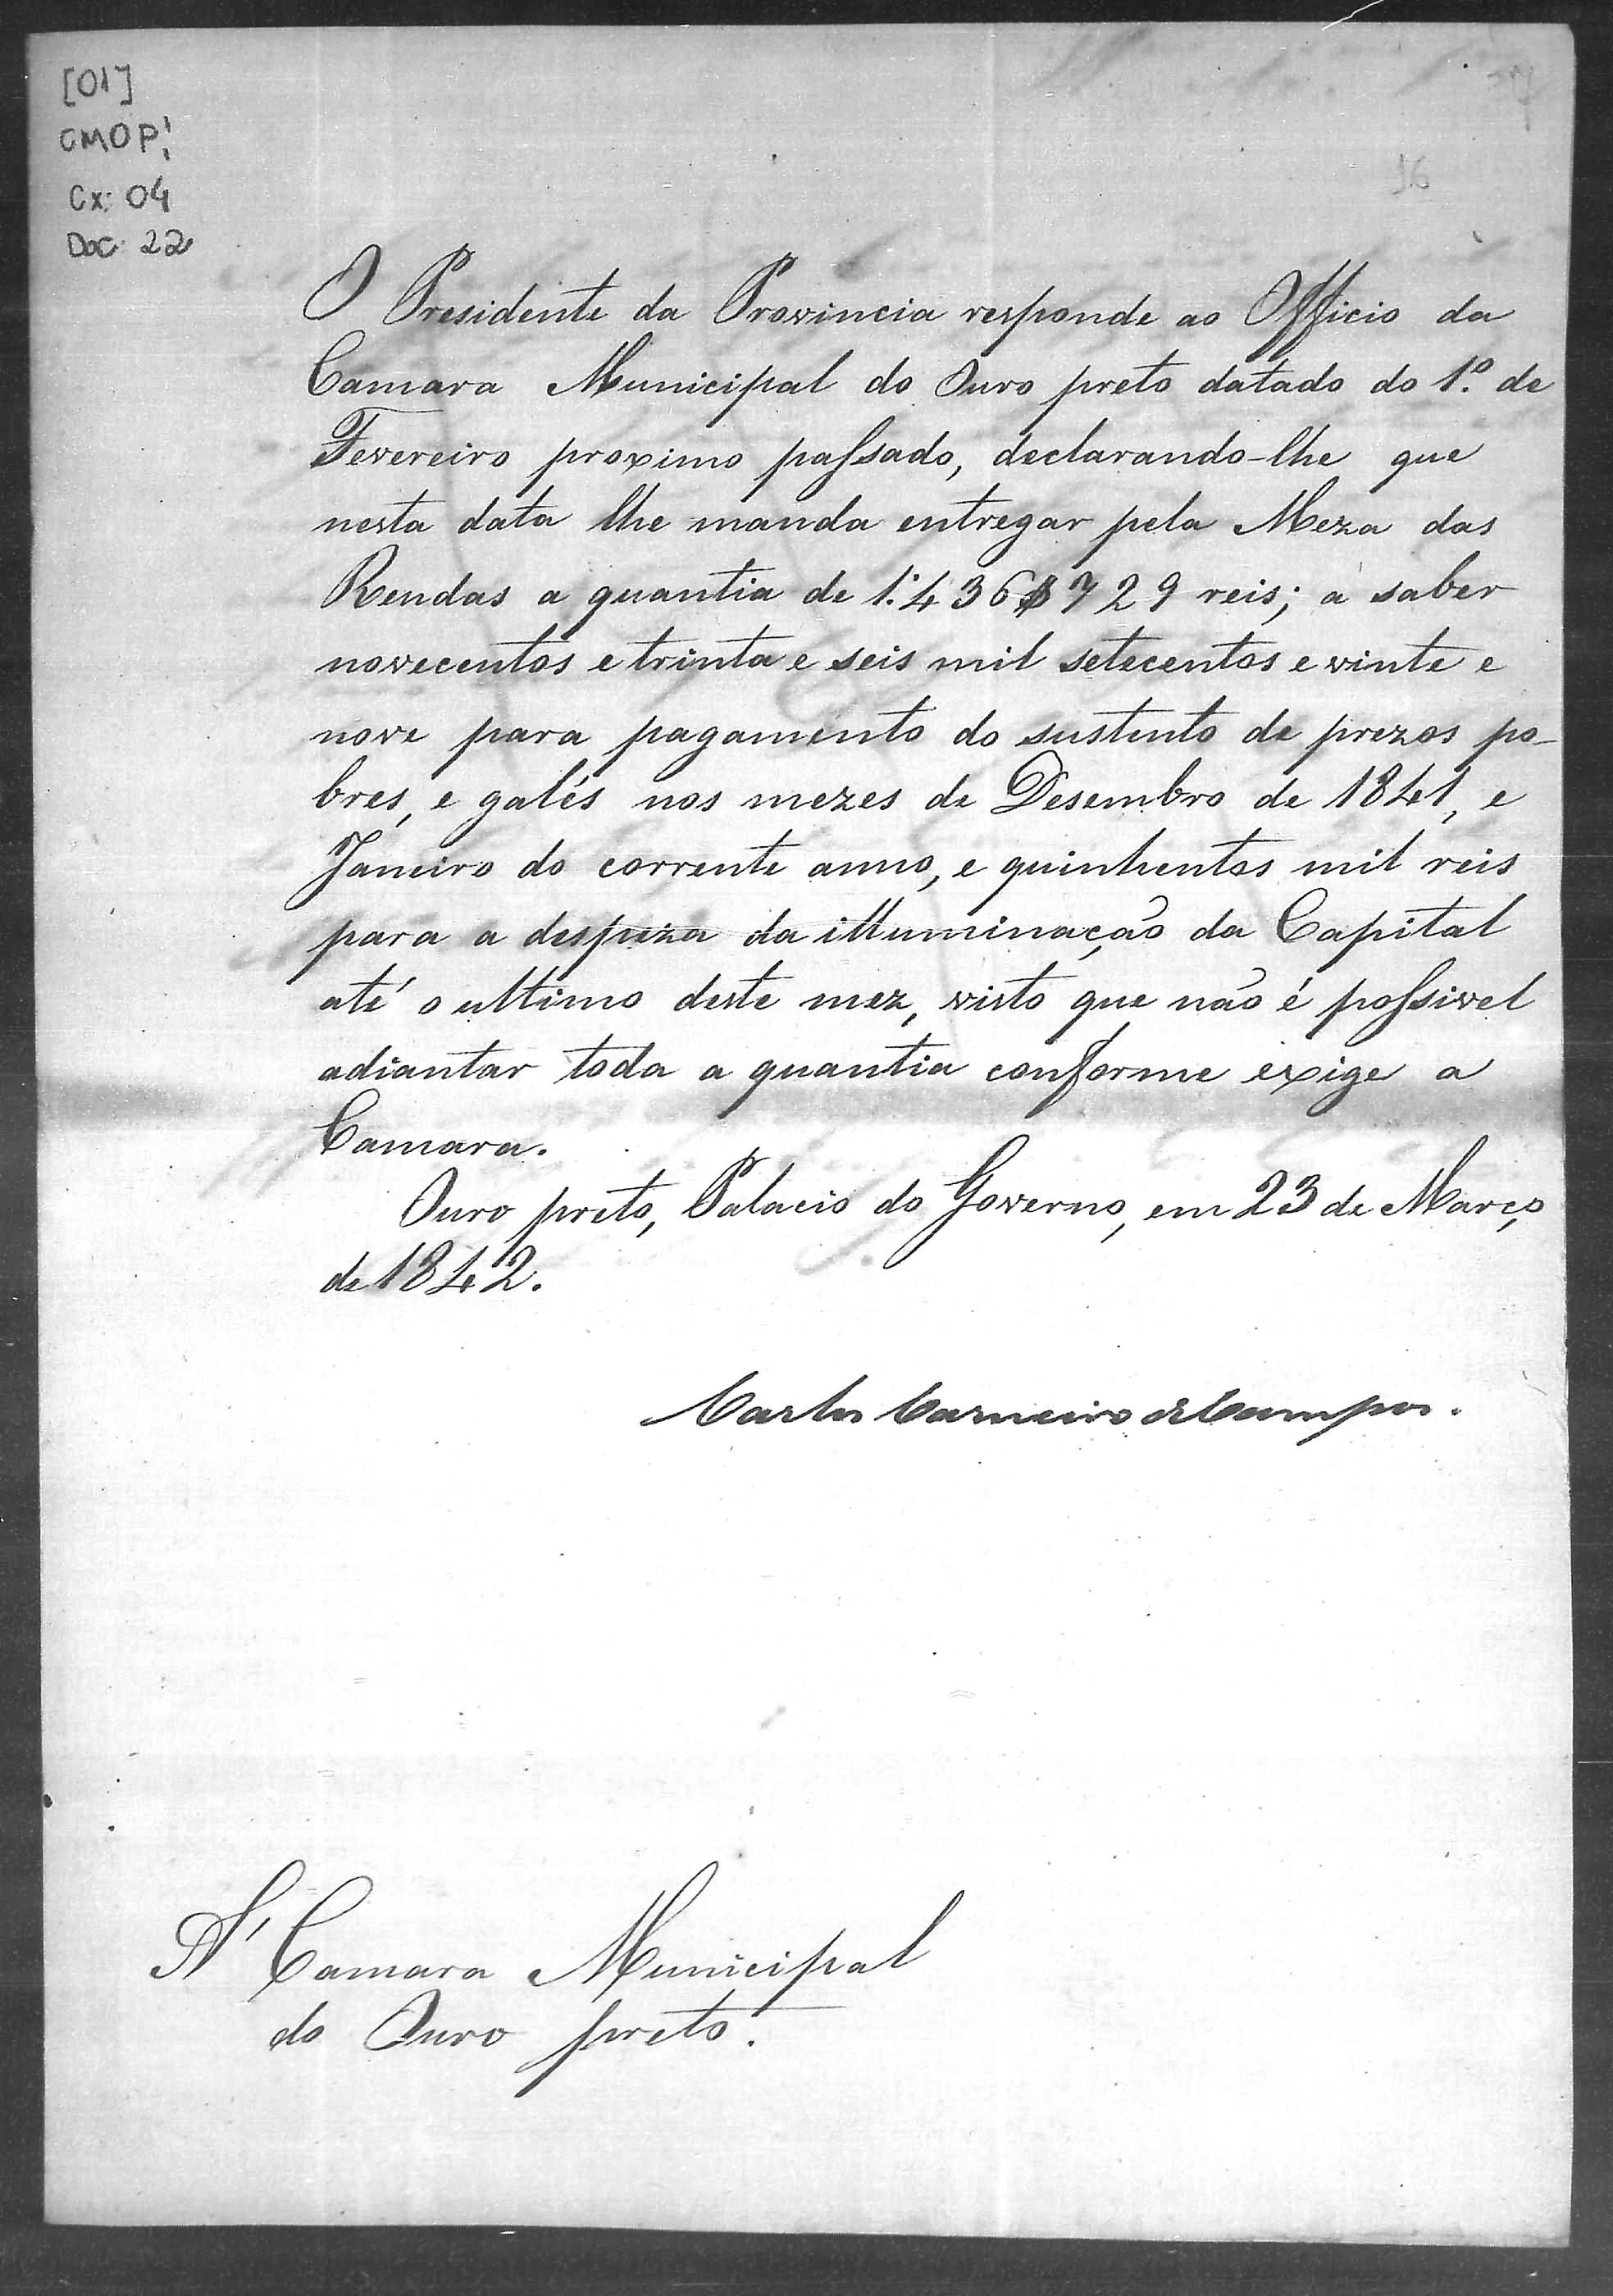 [01]
CMOP!
Cx: 04
Doc 22
36
O Presidente da Provincia responde ao Officio da
Camara Municipal do Ouro preto datado do 1.º de
Fevereiro proximo passado, declarando-lhe que
nesta data lhe manda entregar pela Meza das
Rendas a quantia de 1:436$729 reis; a saber
novecentos e trinta e seis mil setecentos e vinte e
nove para pagamento do sustento de prezos po-
bres, e galés nos mezes de Desembro de 1841, e
Janeiro do corrente anno, e quinhentos mil reis
para a despeza da illuminação da Capital
até o ultimo deste mez, visto que não é possivel
adiantar toda a quantia conforme exige a
Camara.
Ouro preto, Palacio do Governo, em 23 de Março
de 1842.
Carlos Carneiro de Campos.
A' Camara Municipal
do Ouro preto.